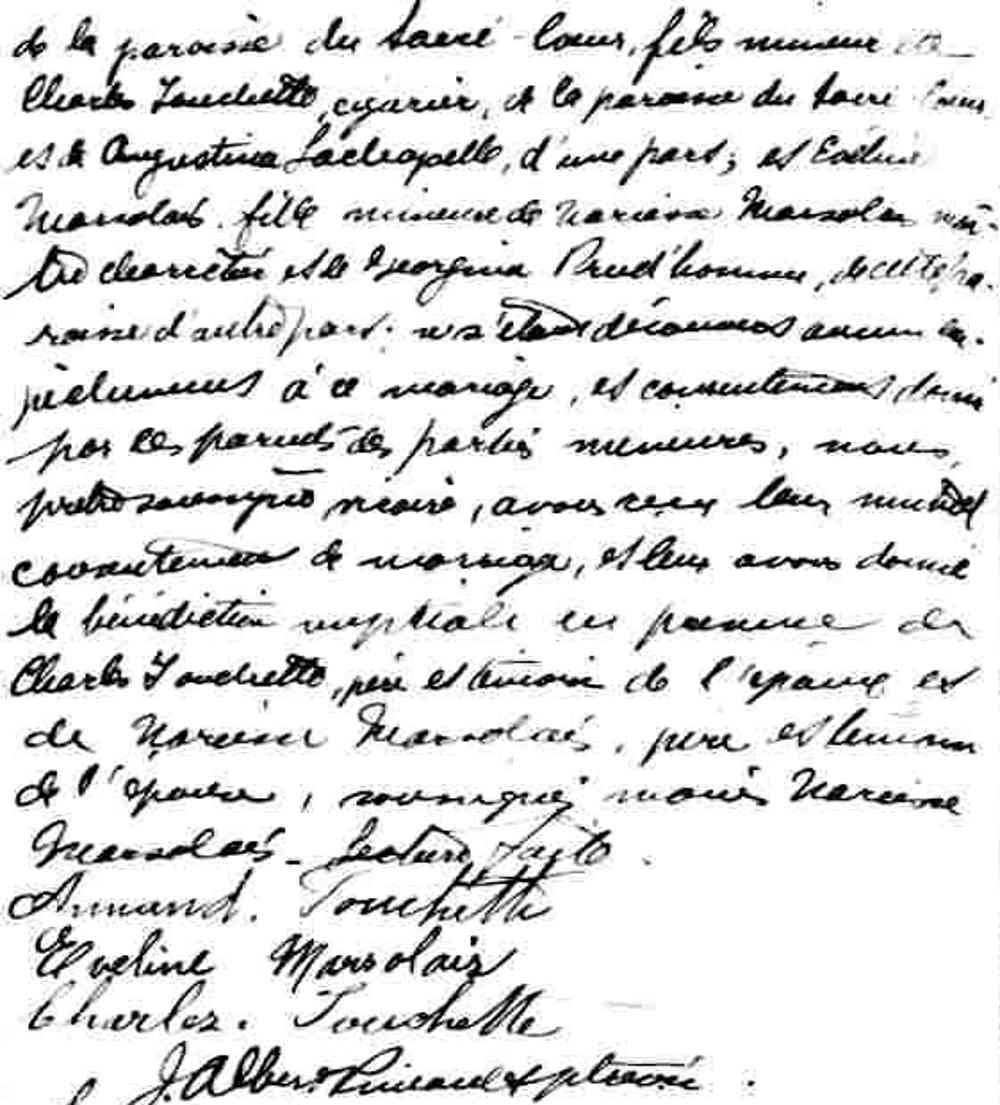 de la paroisse du Sacré-Coeur, fils mineur de
Charles Touchette, cigarier, de la paroisse du Sacré-Coeur
et de Augustina Lachapelle, d'une part; et Eveline
Marsolais fille mineure de Narcisse Marsolais maî-
tre charretier et de Georgina Prud'homme, de cette pa-
roisse d'autre part: ne s'étant découvert aucun em-
pêchement à ce mariage, et consentement donné
par les parents des parties mineures, nous,
prêtre soussigné vicaire, avons reçu leur mutuel
consentement de mariage, et leur avons donné
la bénédiction nuptiale en présence de
Charles Touchette, père et témoin de l'époux et
de Narcisse Marsolais, père et témoin
de l'épouse, soussignés moins Narcisse
Marsolais - Lecture faite.
Armand. Touchette
Eveline Marsolais
Charles. Touchette
J. Albert ptre vic.